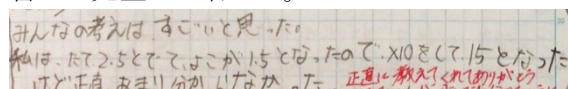 みんなの考えは すごいと思った。
私は、たて2.5とでて、よこが1.5となったので、×10をして15となった
けど正直 あまり分か なかった
正直に教えてくれてありがとう